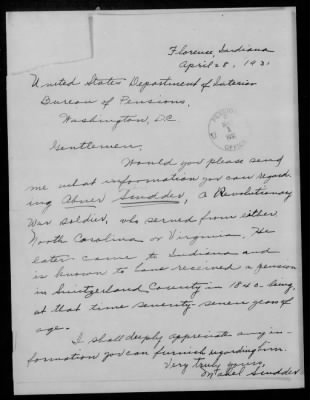 Florence, Indiana
April 28, 1931
United States Department of Interior
Bureau of Pensions,
Washington, D.C.
Gentlemen,
Would you please send
me what information you can regard-
ing Abner Scudder, a Revolutionary
War soldier, who served from either
North Carolina or Virginia. He
later came to Indiana and
is known to have received a pension
in Switzerland County in 1840, being,
at that time seventy-seven years of
age.
I shall deeply appreciate any in-
formation you can furnish regarding him.
Very truly yours,
Mabel Scudder